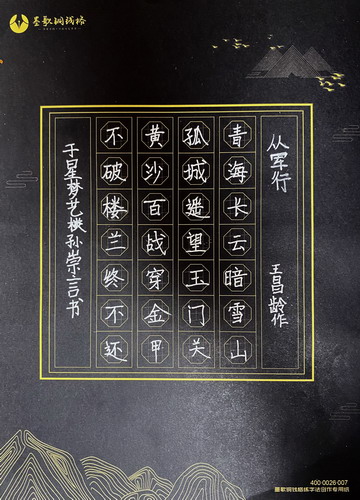 墨歌钢钱格
从军行
王昌龄作
青海长云暗雪山
孤城遥望玉门关
黄沙百战穿金甲
不破楼兰终不还
于星梦艺校孙崇言书
400·0026·007
墨歌钢钱格练字法创作专用纸